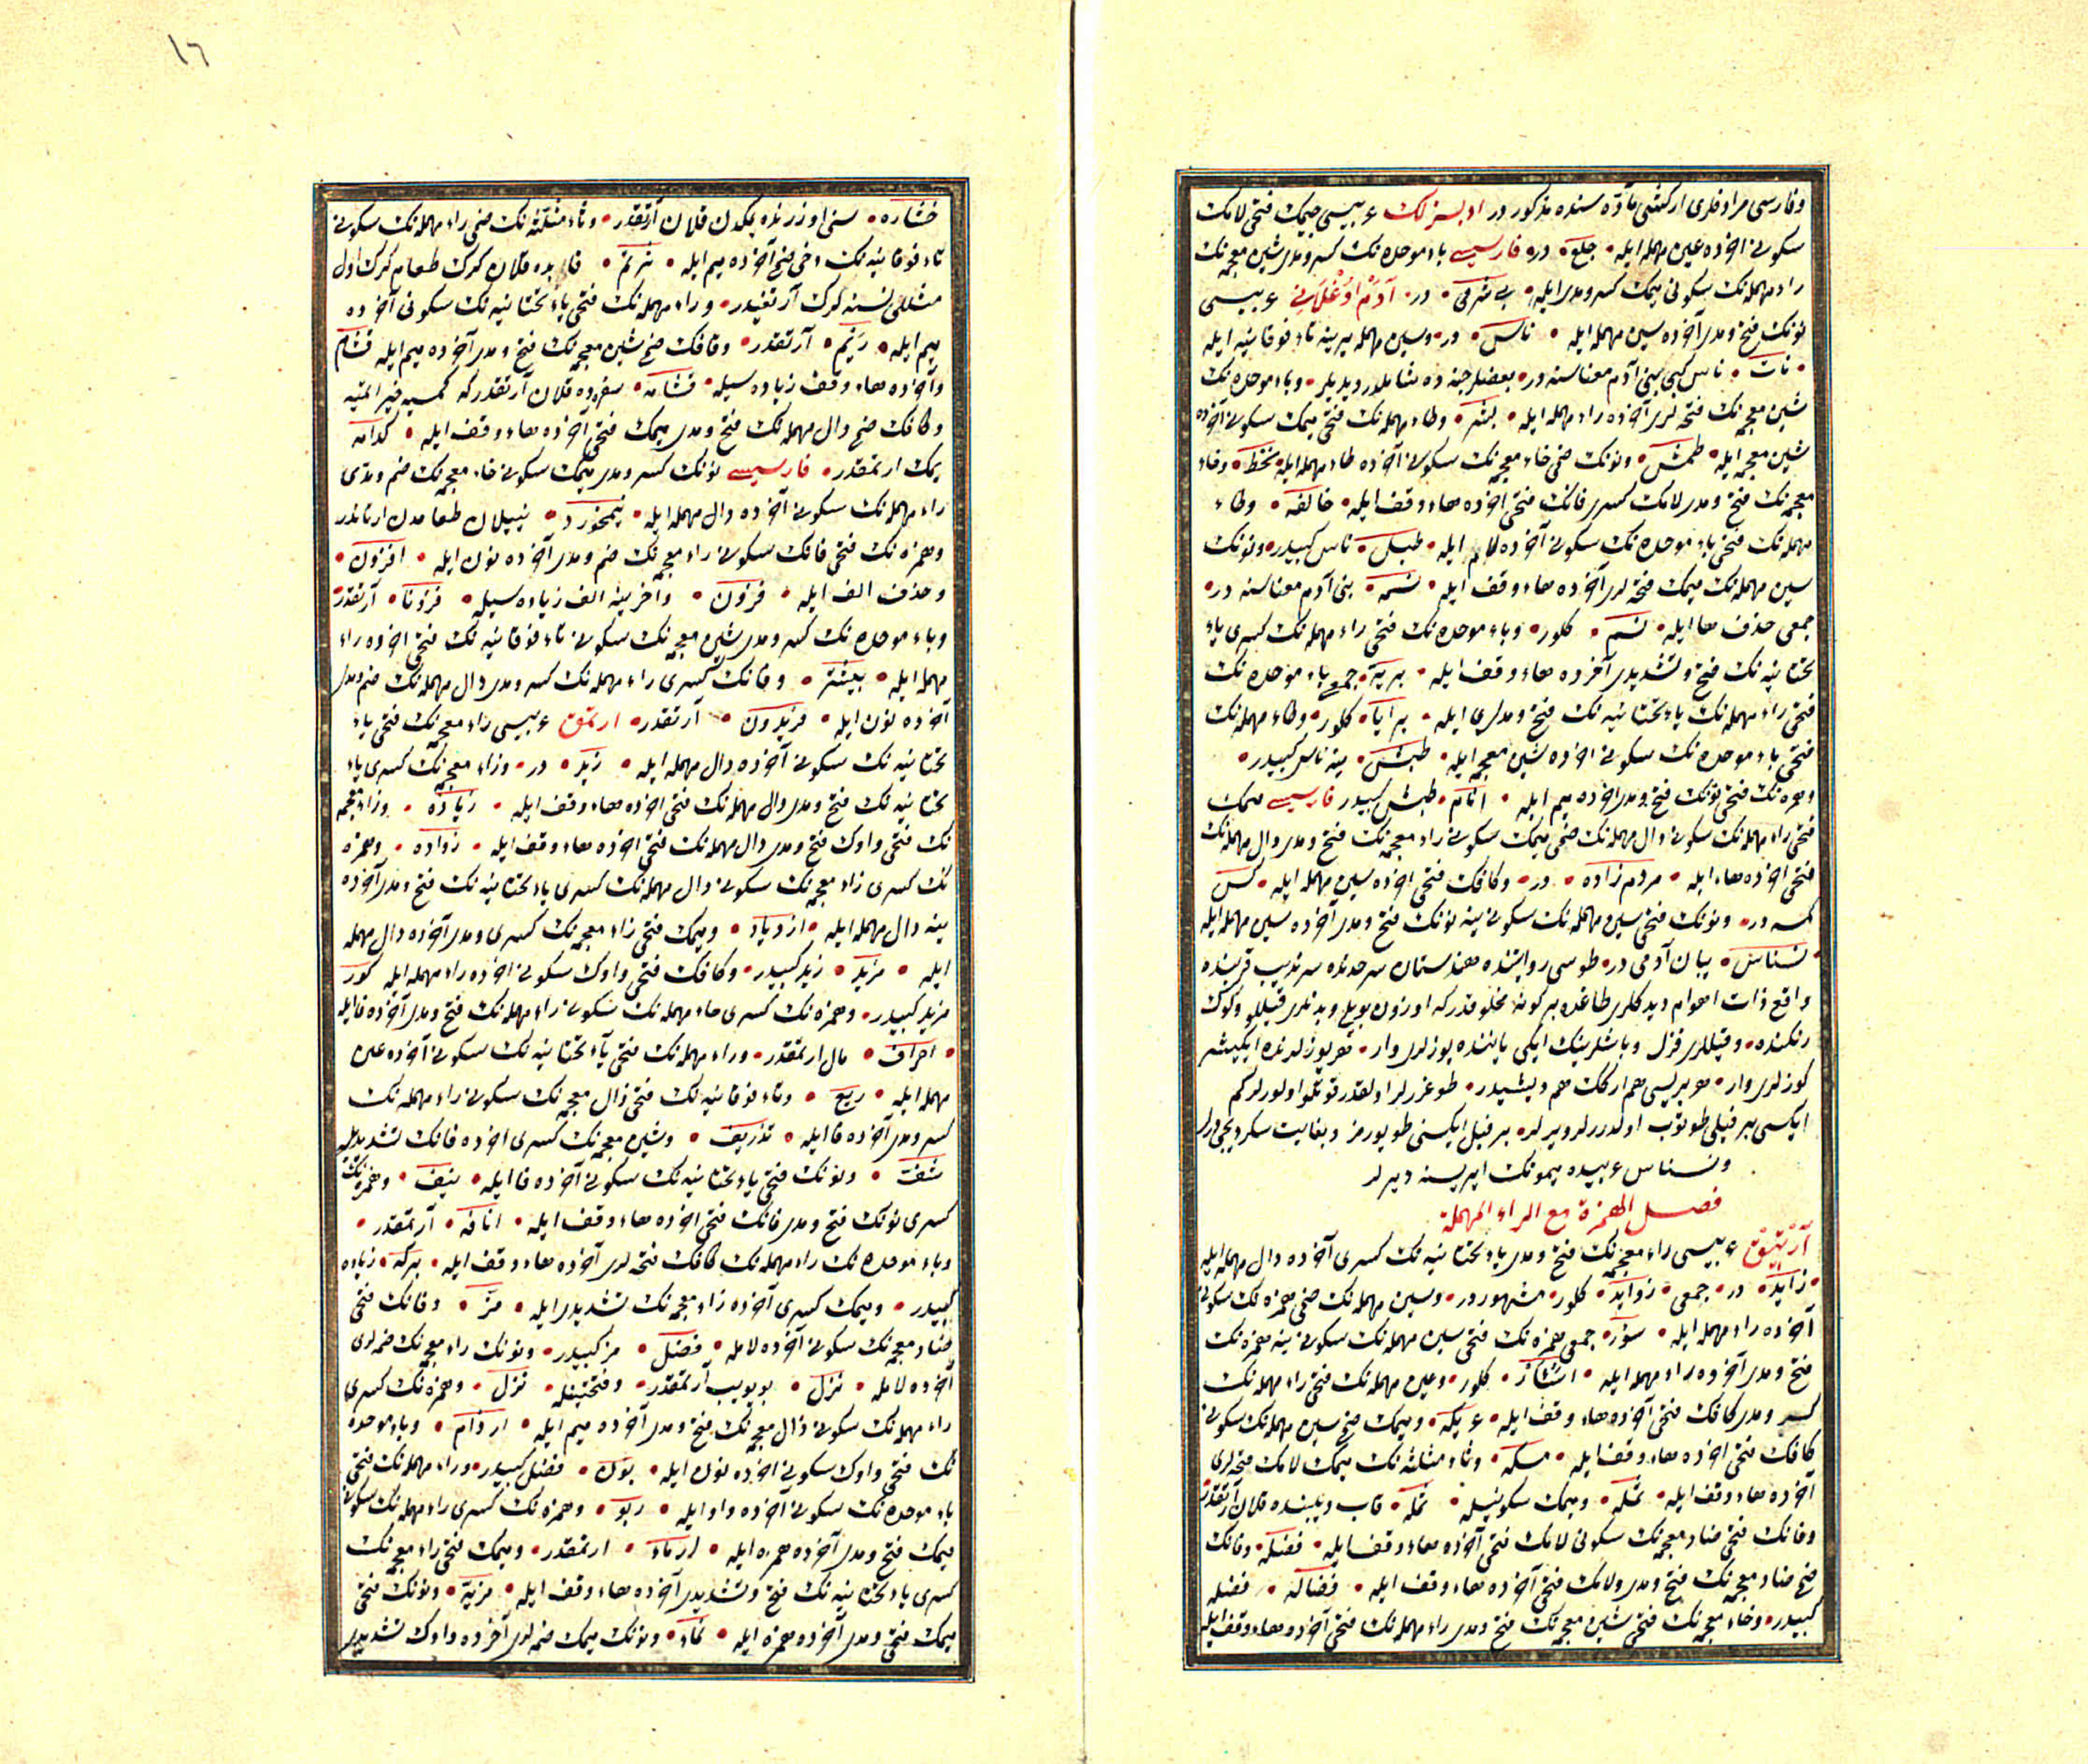 وفارسی مرادفلری ارکنشی مادّه سنده مذکور در ادبسزلک عربیسی جیمک فتحی لامک
سکونی اخرده عین مهمله ایله جلع در فارسیسی باء موحده نک کسر ومدی شین معجمه نک
راء مهمله نک سکونی میمک کسر ومدی ایله بی شرمی در آدم اوغلانی عربیسی
نونک فتح ومدی آخرده سین مهمله ایله ناس در وسین مهمله یرینه تاء فوقانیه ایله
نات ناس کبی بنی آدم معناسنه در بعضلر جنه ده شاملدر دیدیلر وباء موحده نک
شین معجمه نک فتحه لری آخرده راء مهمله ایله بشر وطاء مهمله نک فتحی میمک سکونی آخرده
شین معجمه ایله طمش ونونک ضمی خاء معجمه نک سکونی آخرده طاء مهمله ایله نخط وخاء
معجمه نک فتح ومدی لامک کسری فانک فتحی اخرده هاء وقف ایله خالفه وطاء
مهمله نک فتحی باء موحده نک سکونی آخرده لام ایله طبل ناس کبیدر ونونک
سین مهمله نک میمک فتحه لری آخرده هاء وقف ایله نسمه بنی آدم معناسنه در
جمعی حذف ها ایله نسم کلور وباء موحده نک فتحی راء مهمله نک کسری یاء
تحتانیه نک فتح وتشدیدی آخرده هاء وقف ایله بریة جمعی باء موحده نک
فتحی راء مهمله نک یاء تحتانیه نک فتح ومدلری ایله برایا کلور وطاء مهمله نک
فتحی باء موحده نک سکونی اخرده شین معجمه ایله طبش ینه ناس کبیدر
وهمزه نک فتحی نونک فتح ومدی اخرده میم ایله انام طبش کبیدر فارسیسی میمک
فتحی راء مهمله نک سکونی دال مهمله نک ضمی میمک سکونی زاء معجمه نک فتح ومدی دال مهمله نک
فتحی اخرده هاء ایله مردم زاده در وکافک فتحی اخرده سین مهمله ایله کس
کمسه در ونونک فتحی سین مهمله نک سکونی ینه نونک فتح ومدی آخرده سین مهمله ایله
نسناس یبان آدمی در طوسی روایتنده هندستان سرحدنده سرندیب قربنده
واقع ذات اهوام دیدکلری طاغده بر کونه مخلوقدر که اوزون بویلی وبدنلری قیللو وکوک
رنکنده وقیللری قزل وباشلرینک ایکی یاننده یوزلری وار هر یوزلرنده ایکیشر
کوزلری وار هر بریسی هم ارکک هم دیشیدر طوغررلر اولقدر قوتلو اولورلر کم
ایکسی بر فیلی طوتوب اولدررلر ویرلر بر فیل ایکسنی طویورمز وبغایت سکردیجی درلر
ونسناس عربیده میمونک ایریسنه دیرلر
فصل الهمزة مع الراء المهملة
آرتیق عربیسی زاء معجمه نک فتح ومدی یاء تحتانیه نک کسری آخرده دال مهمله ایله
زاید در جمعی زواید کلور مشهوردر وسین مهمله نک ضمی همزه نک سکونی
آخرده راء مهمله ایله سؤر جمعی همزه نک فتحی سین مهمله نک سکونی ینه همزه نک
فتح ومدی آخرده راء مهمله ایله اسآر کلور وعین مهمله نک فتحی راء مهمله نک
کسر ومدی کافک فتحی آخرده هاء وقف ایله عریکه ومیمک ضمی سین مهمله نک سکونی
کافک فتحی اخرده هاء وقف ایله مسکه وثاء مثلثه نک میمک لامک فتحه لری
آخرده هاء وقف ایله ثمله ومیمک سکونیله ثمله قاب دیبنده قلان آرتقدر
وفانک فتحی ضاد معجمه نک سکونی لامک فتحی آخرده هاء وقف ایله فضله وفانک
ضمی ضاد معجمه نک فتح ومدی ولامک فتحی آخرده هاء وقف ایله فضاله فضله
کبیدر وخاء معجمه نک فتحی شین معجمه نک فتح ومدی راء مهمله نک فتحی آخرده هاء وقف ایله
١٦
خشاره سنی اوزرنده یمکدن قلان آرتقدر وثاء مثلثه نک ضمی راء مهمله نک سکونی
تاء فوقانیه نک دخی ضمی آخرده میم ایله ثرتم قابده قلان کرک طعام کرک اول
مثللی نسنه کرک آرتغیدر وراء مهمله نک فتحی یاء تحتانیه نک سکونی آخرده
میم ایله ریم آرتقدر وقافک ضمی شین معجمه نک فتح ومدی آخرده میم ایله قشام
وآخرده هاء وقف زیاده سیله قشامه سفره ده قلان آرتقدر که کمسه خیر ایتمیه
وکافک ضمی دال مهمله نک فتح ومدی میمک فتحی آخرده هاء وقف ایله کدامه
یمک ارتقدر فارسیسی نونک کسر ومدی میمک سکونی خاء معجمه نک ضم ومدی
راء مهمله نک سکونی آخرده دال مهمله ایله نیمخورد ییلان طعامدن ارتاندر
وهمزه نک فتحی فانک سکونی زاء معجمه نک ضم ومدی آخرده نون ایله افزون
وحذف الف ایله فزون واخرینه الف زیاده سیله فزونا آرتقدر
وباء موحده نک کسر ومدی شین معجمه نک سکونی تاء فوقانیه نک فتحی اخرده راء
مهمله ایله بیشتر وفانک کسری راء مهمله نک کسر ومدی دال مهمله نک ضم ومدی
آخرده نون ایله فریدون آرتقدر ارتمق عربیسی زاء معجمه نک فتحی یاء
تحتانیه نک سکونی آخرده دال مهمله ایله زید در وزاء معجمه نک کسری یاء
تحتانیه نک فتح ومدی دال مهمله نک فتحی اخرده هاء وقف ایله زیاده وزاء معجمه
نک فتحی واوک فتح ومدی دال مهمله نک فتحی اخرده هاء وقف ایله زواده وهمزه
نک کسری زاء معجمه نک سکونی دال مهمله نک کسری یاء تحتانیه نک فتح ومدی آخرده
ینه دال مهمله ایله ازدیاد ومیمک فتحی زاء معجمه نک کسری ومدی آخرده دال مهمله
ایله مزید زید کبیدر وکافک فتحی واوک سکونی اخرده راء مهمله ایله کور
مزید کبیدر وهمزه نک کسری حاء مهمله نک سکونی راء مهمله نک فتح ومدی آخرده فا ایله
احراف مال ارتمقدر وراء مهمله نک فتحی یاء تحتانیه نک سکونی آخرده عین
مهمله ایله ریع وتاء فوقانیه نک فتحی ذال معجمه نک سکونی راء مهمله نک
کسر ومدی آخرده فا ایله تذریف وشین معجمه نک کسری اخرده فانک تشدیدیله
شف ونونک فتحی یاء تحتانیه نک سکونی آخرده فا ایله نیف وهمزه نک
کسری نونک فتح ومدی فانک فتحی اخرده هاء وقف ایله انافه آرتمقدر
وباء موحده نک راء مهمله نک کافک فتحه لری آخرده هاء وقف ایله برکه زیاده
کبیدر ومیمک کسری آخرده زاء معجمه نک تشدیدی ایله مز وفانک فتحی
ضاد معجمه نک سکونی آخرده لامله فضل مز کبیدر ونونک زاء معجمه نک ضمه لری
آخرده لامله نزل بویویب آرتمقدر وفتحتینله نزل وهمزه نک کسری
راء مهمله نک سکونی ذال معجمه نک فتح ومدی آخرده میم ایله ارذام وباء موحده
نک فتحی واوک سکونی اخرده نون ایله بون فضل کبیدر وراء مهمله نک فتحی
باء موحده نک سکونی آخرده واو ایله ربو وهمزه نک کسری راء مهمله نک سکونی
میمک فتح ومدی آخرده همزه ایله ارماء ارتمقدر ومیمک فتحی زاء معجمه نک
کسری یاء تحتانیه نک فتح وتشدیدی آخرده هاء وقف ایله مزیة ونونک فتحی
میمک فتحی ومدی آخرده همزه ایله نماء ونونک میمک ضمه لری آخرده واوک تشدیدی